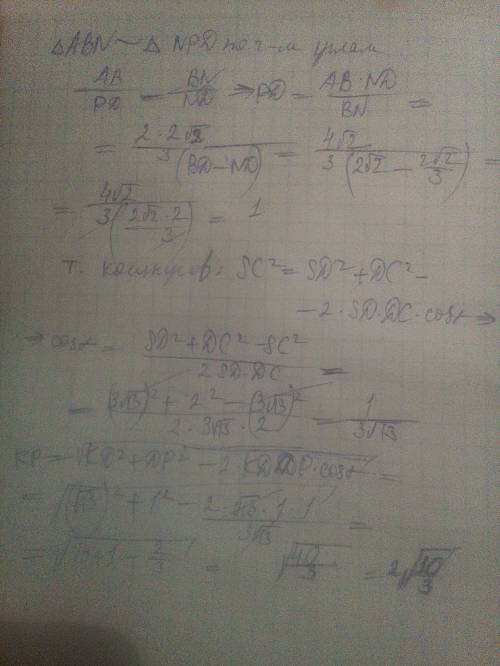 △ABN ~ △NPD по 2-м углам
AB/PD = BN/ND ⇒ PD = (AB·ND)/BN =
= (2·2√2)/(3(BD-ND)) = 4√2/(3(2√2 - 2√2/3)) =
= 4√2/(3(2√2·2/3)) = 1
т. косинусов: SC² = SD² + DC² -
- 2·SD·DC·cosα ⇒
⇒ cosα = (SD² + DC² - SC²)/(2SD·DC) =
= ((3√3)² + 2² - (3√3)²)/(2·3√3·2) = 1/(3√3)
KP = √(KD² + DP² - 2·KD·DP·cosα) =
= √((√3)² + 1² - (2·√3·1·1)/(3√3)) =
= √( + 1 - 2/3) = √(10/3) = 2√(10/3)